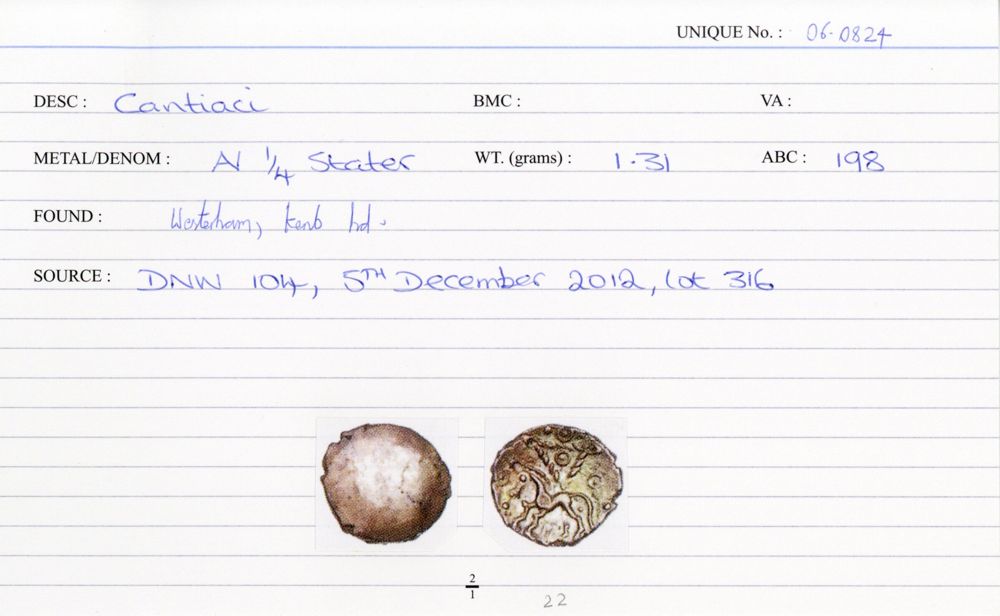 UNIQUE No. : 06-0824
DESC : Cantiaci BMC : VA :
METAL/DENOM : AV 1/4 Stater WT. (grams) : 1.31 ABC : 198
FOUND : Westerham, Kent hd.
SOURCE : DNW 104, 5TH December 2012, lot 316
2/1
22